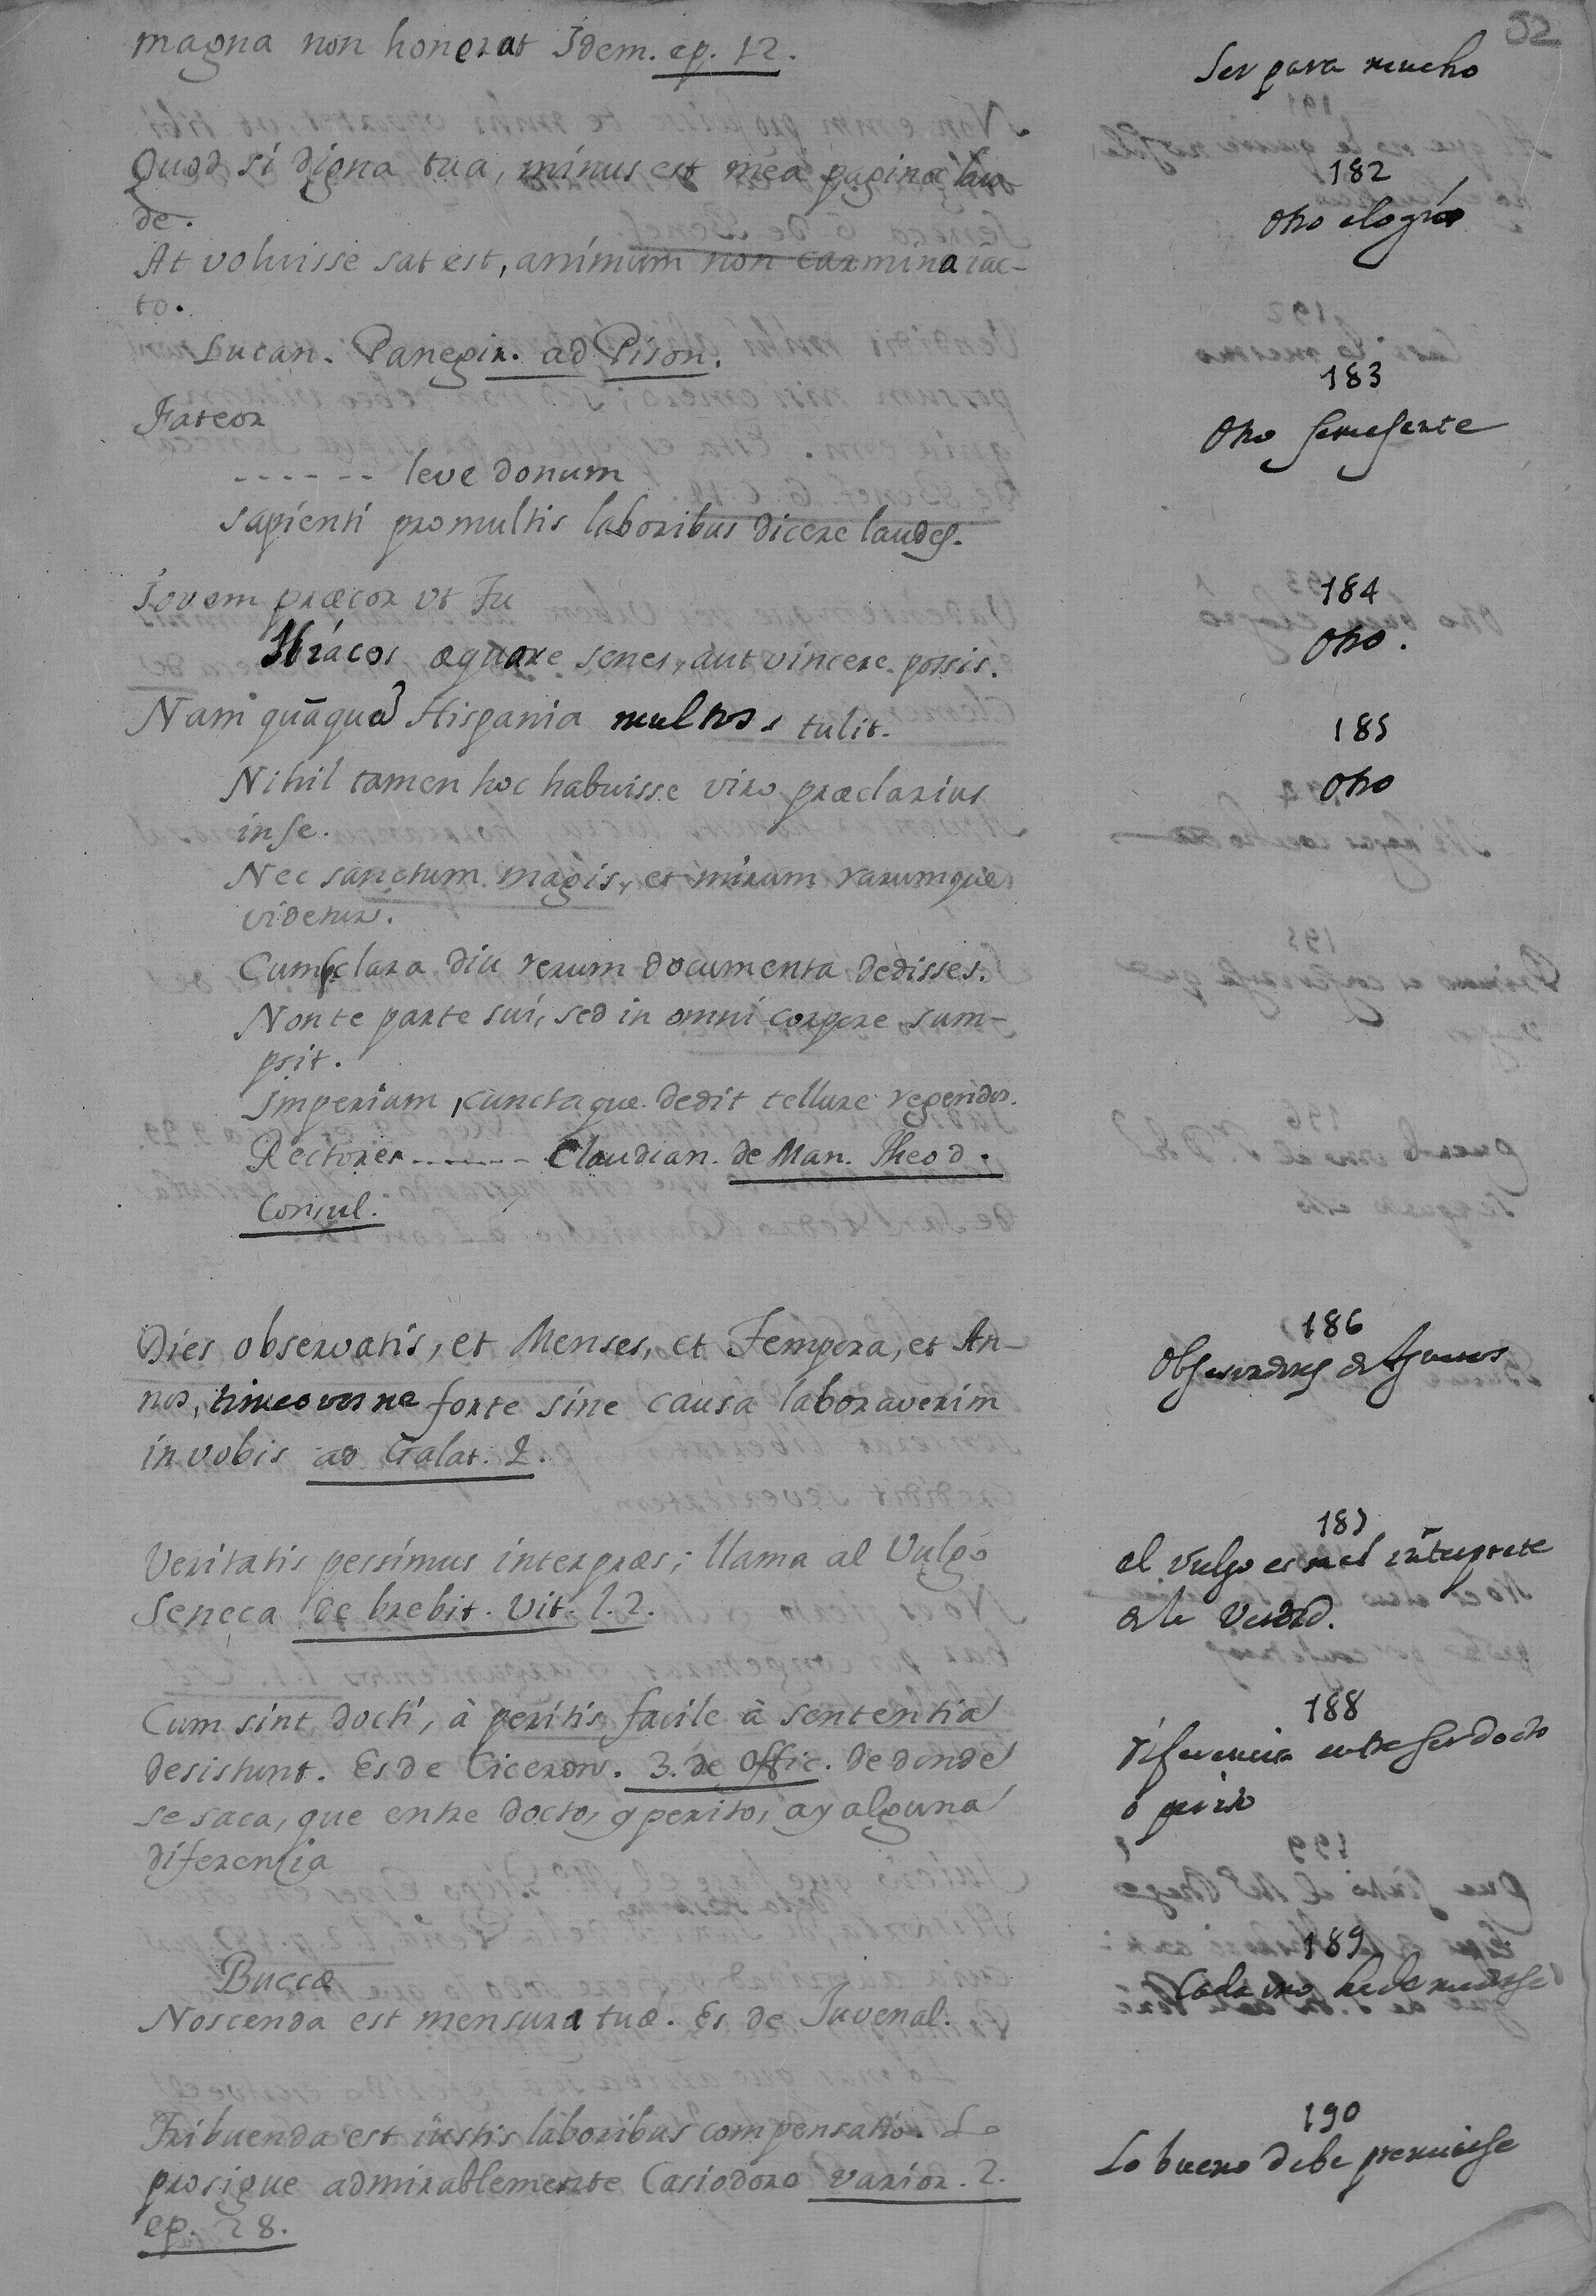 52
magna non honerat Idem. ep. 12.
Ser para mucho
Quod si digna tua, minus est mea pagina lau-
de.
182
Otro elogio
At voluisse sat est, animum non carmina iac-
to.
Lucan. Panegir. ad Pison.
183
Otro semejante
Fateor
------ leve donum
sapienti pro multis laboribus dicere laudes.
184
Otro.
Iovem præcor vt Tu
æquare senes, aut vincere possis.
185
Otro
Nam quãquã Hispania multos tulit.
Nihil tamen hoc habuisse viro præclarius
in se.
Nec sanctum magis, et mirum rarumque
videtur.
Cum clara diu rerum documenta dedisses.
Non te parte sui, sed in omni corpore sum-
psit.
Imperium, cunctaque dedit tellure regendos.
Rectores ------- Claudian. de Man. Theod.
Consul.
186
Observadores de Agueros
Dies observatis, et Menses, et Tempora, et An-
nos, timeo vos ne forte sine causa laboraverim
in vobis ad Galat. 2.
187
el Vulgo es mal interprete
de la Verdad.
Veritatis pessimus interpræs; llama al Vulgo
Seneca de brebit. Vit. l. 2.
188
diferencia entre ser docto
o perito
Cum sint docti, à peritis facile à sententia
desistunt. Es de Ciceron. 3. de Offic. de donde
se saca, que entre docto, y perito, ay alguna
diferencia
189
Cada uno ha de medirse
Buccæ
Noscenda est mensura tuæ. Es de Iuvenal.
190
Lo bueno debe premiarse
Tribuenda est iustis laboribus compensatio. Lo
prosigue admirablemente Casiodoro varior. 2.
ep. 28.